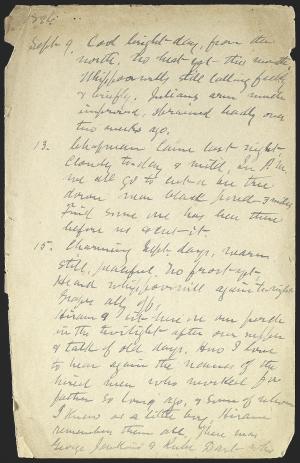 1886
Sept 9. Cool bright day, from the
north. No heat yet this month
Whippoorwills still calling feebly
& briefly. Julians arm much
improved, strained badly over
two weeks ago.
13. Chapman came last night.
Cloudy to-day & mild, In P.M.
we all go to cut a bee tree
down near black pond - 3 miles
Find some one has been there
before us & cut it.
15. Charming Sept days, warm
still, peaceful, No frost yet.
Heard whip-poor-will again to-night
Grapes all off,
Hiram & I sit here on our porch
in the twilight after our supper
& talk of old days. How I love
to hear again the names of the
hired men who worked for
father so long ago, & some of whom
I knew as a little boy. Hiram
remembers them all, There was
George Jenkins & Rube Dart who